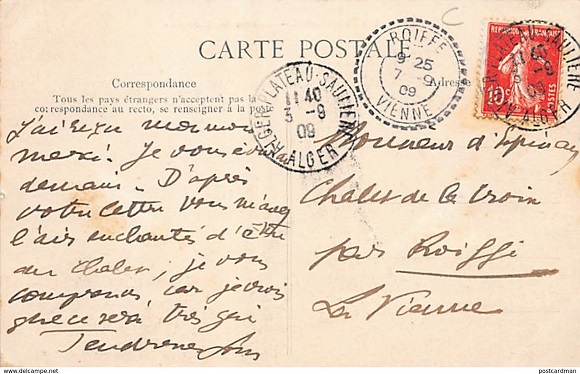 CARTE POSTALE
Correspondance
Tous les pays étrangers n'acceptent pas la
correspondance au recto, se renseigner à la poste
Adresse
ROIFFÉ
9 25
7 - 9
09
VIENNE
ALGER-PLATEAU-SAULIÈRE
11 40
3 - 9
09
ALGER
POSTES
10c
J'ai reçu
merci. Je vous
demain. D'après
votre lettre vous
l'air enchantés d'être
au Chalet, je vous
comprends car je crois
que ce sera très gai
Tendresses
Monsieur d'Epinay
Chalet de la
par Roiffé
La Vienne
postcardman
www.delcampe.net